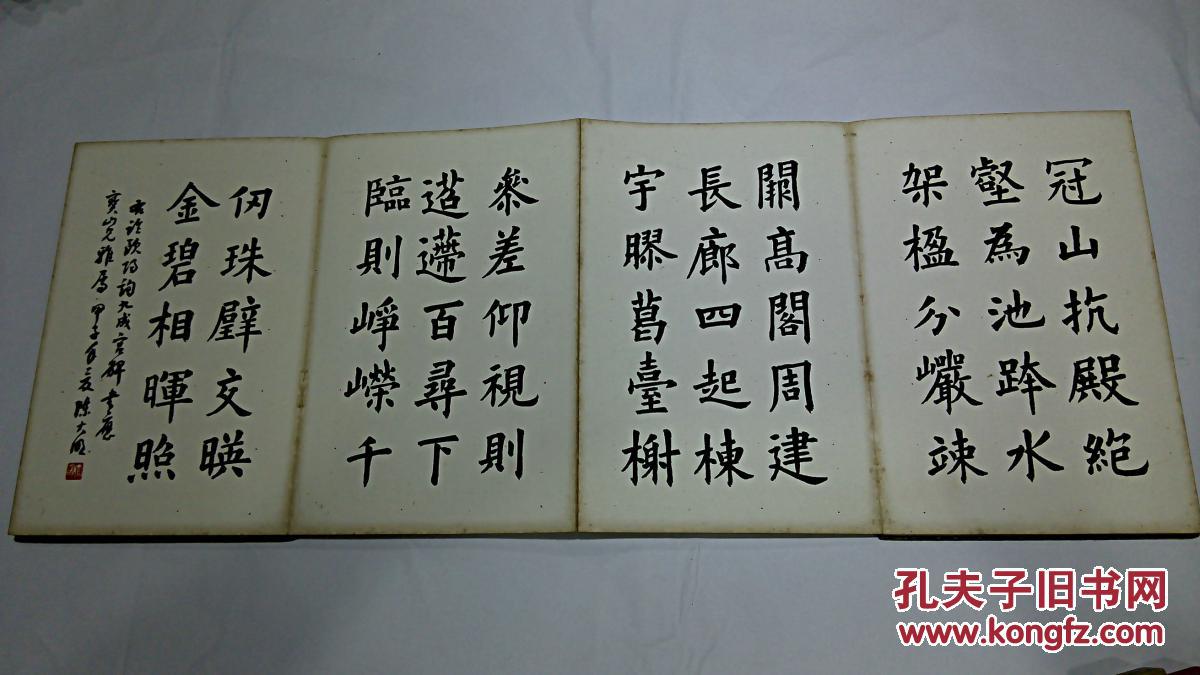 冠山抗殿絶
壑為池跨水
架楹分巖竦
闕高閣周建
長廊四起棟
宇膠葛臺榭
叅差仰視則
迢遰百尋下
臨則崢嶸千
仞珠璧交暎
金碧相暉照
臨歐陽詢九成宮碑書應
寶山兄雅屬甲子年陳大
孔夫子旧书网
www.kongfz.com